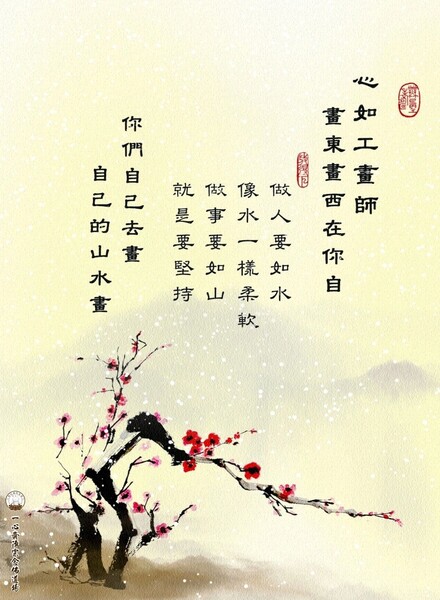 心如工畫師
畫東畫西在你自
做人要如水
像水一樣柔軟
做事要如山
就是要堅持
你們自己去畫
自己的山水畫